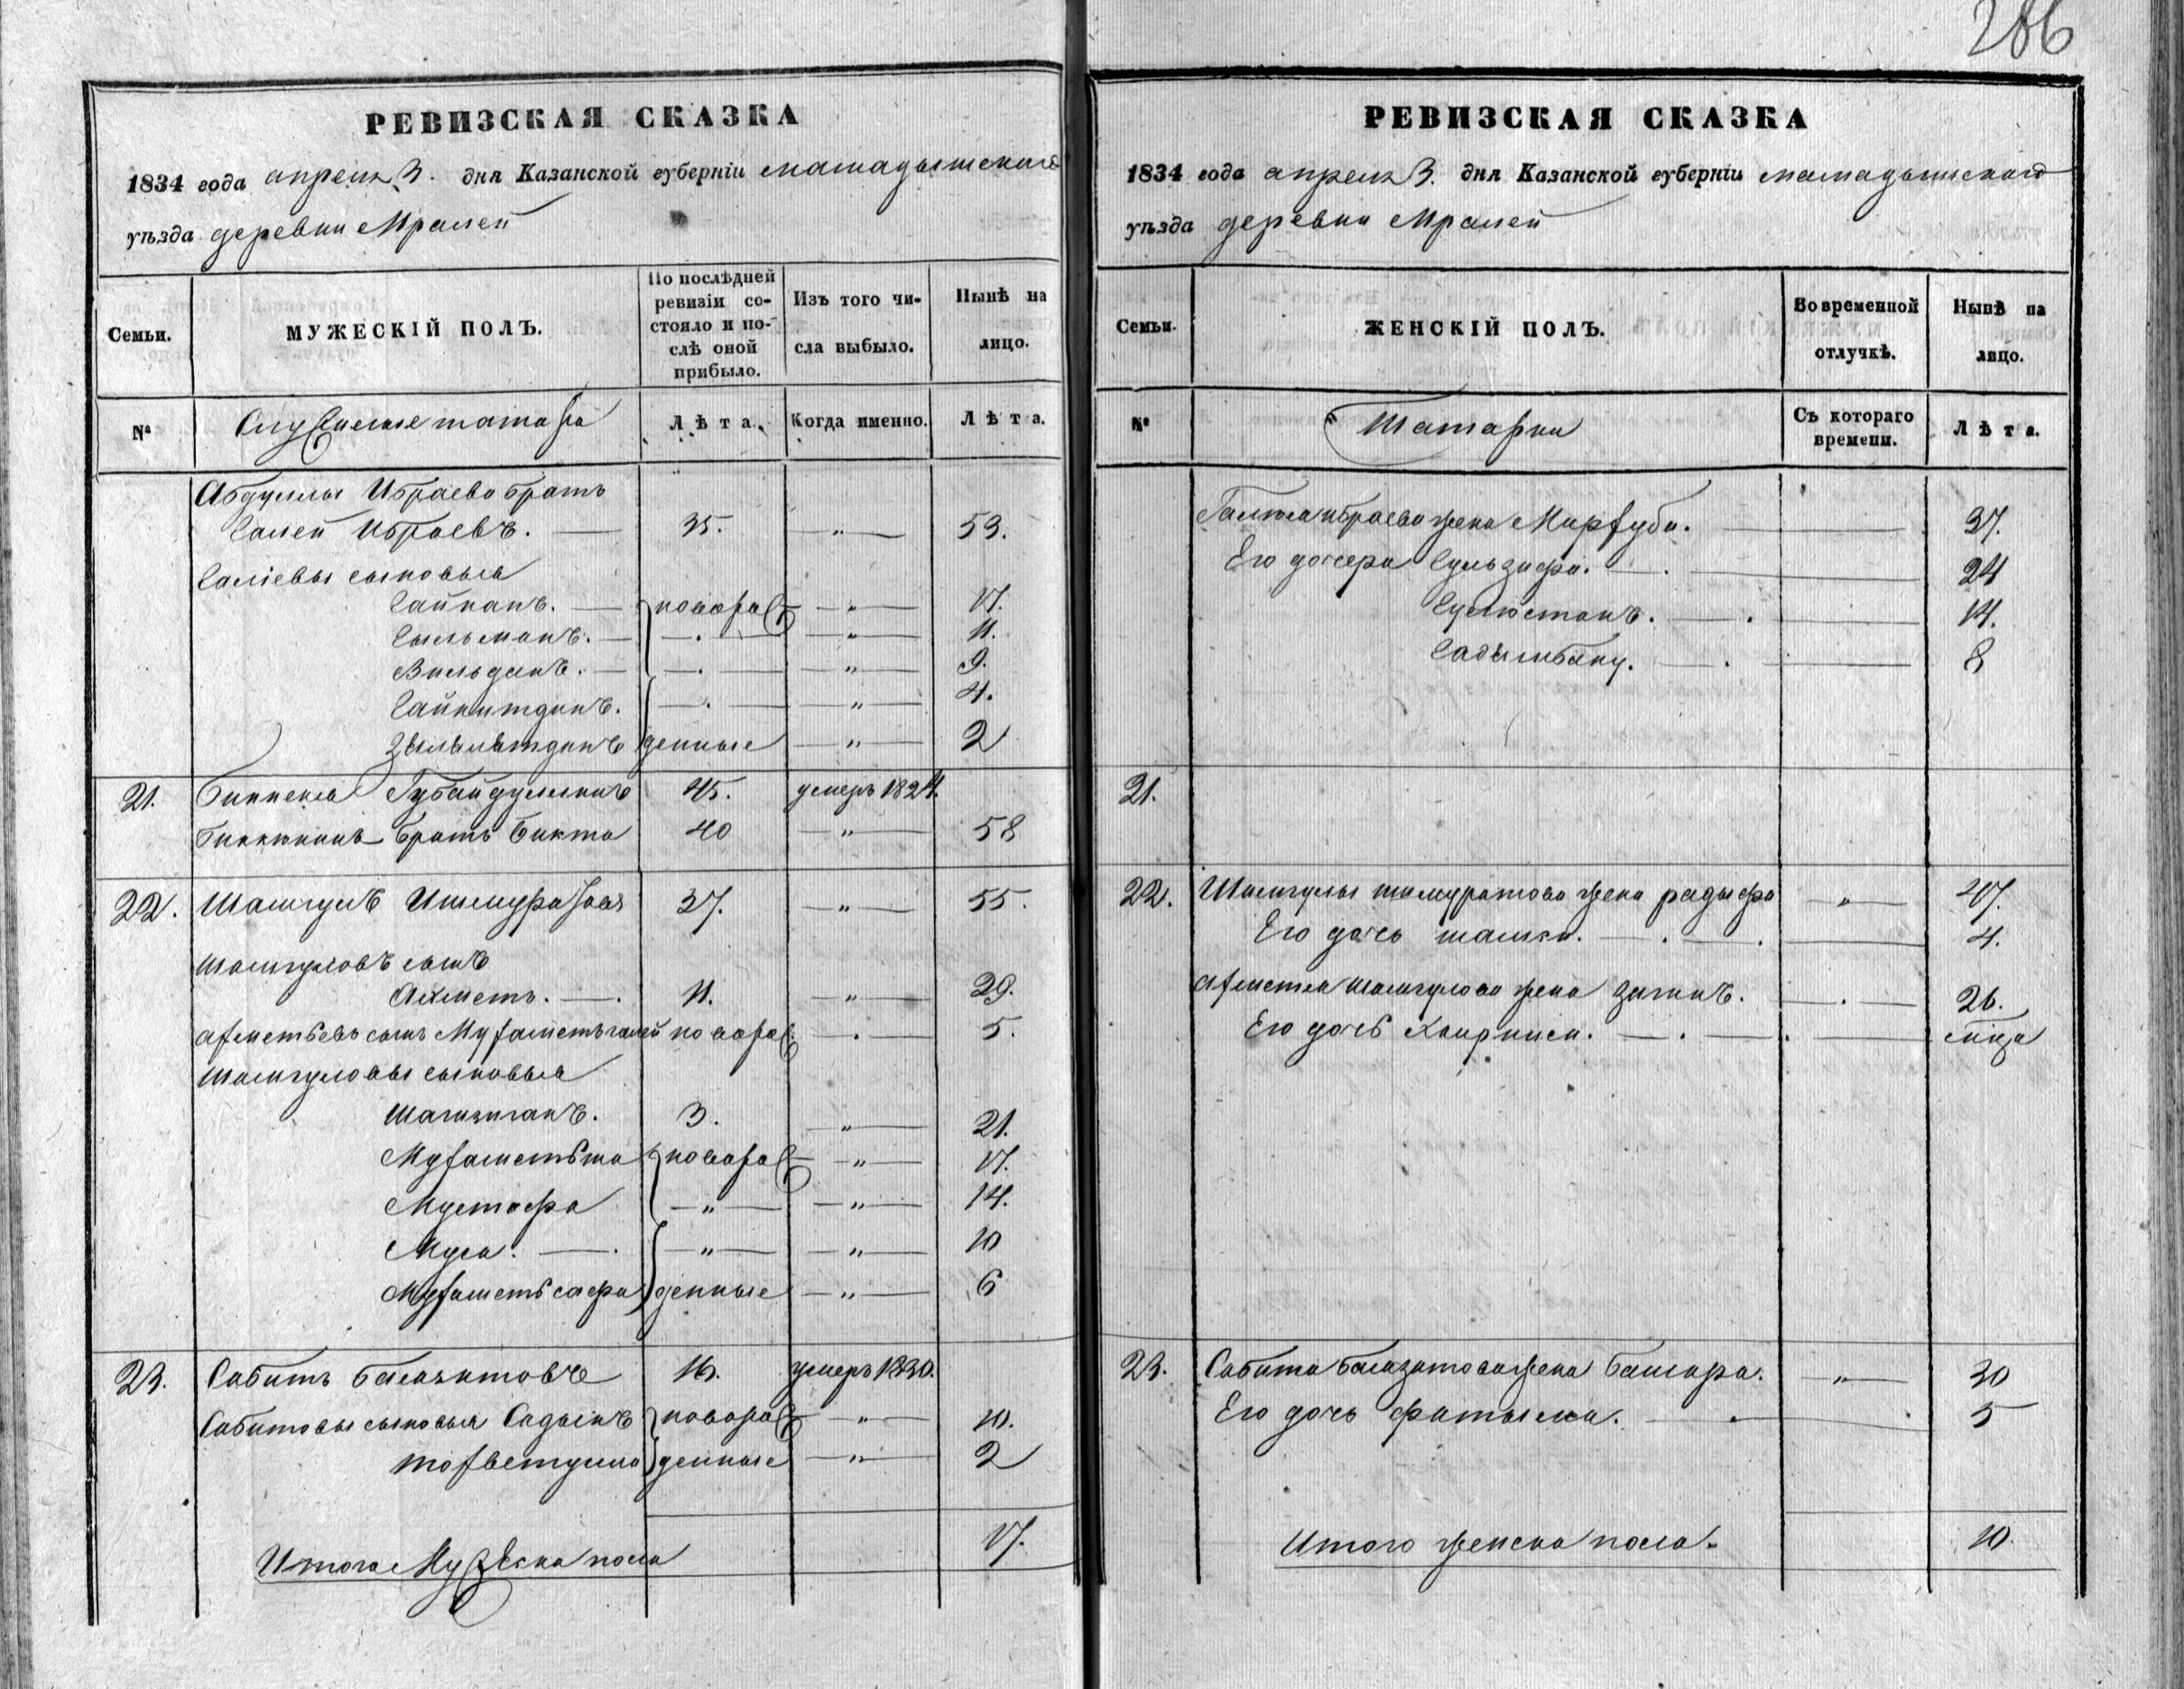 286
РЕВИЗСКАЯ СКАЗКА
1834 года апреля 3. дня Казанской губернiи мамадышскаго
уѣзда деревни Мралей
Семьи.
МУЖЕСКIЙ ПОЛЪ.
По послѣдней ревизiи со-
стояло и по-
слѣ оной
прибыло.
Изъ того чи-
сла выбыло.
Нынѣ на
лицо.
№
Служилые татара
Лѣта.
Когда именно.
Лѣта.
Абдуллы Ибраева братъ
Галей Ибраевъ. 35. — „ — 53.
Галiевы сыновья
Гайнанъ. новоро — „ — 17.
Гильманъ. — „ — 11.
Вильданъ. — „ — 9.
Гайнитдинъ. — „ — 4.
денные — „ — 2
21. Губайдуллинъ 45. умеръ 1824.
братъ Бикта 40 — „ — 58
22. Шамгулъ Ишмуратовъ 37. — „ — 55.
Шамгуловъ сынъ
Ахметъ. 11. — „ — 29.
Ахметьевъ сынъ Мухаметьгалей новорож. 5.
Шамгуловы сыновья
Шагизиганъ. 3. — „ — 21.
Мухаметьша новорож — „ — 17.
Мустафа — „ — — „ — 14.
Муса. — „ — — „ — 10
Мухаметьсафа денные — „ — 6
23. Сабитъ Баязитовъ 16. умеръ 1830.
Сабитовы сыновья Садыкъ новорож — „ — 10.
Тохветулла денные — „ — 2
Итого Мужеска пола 17.
РЕВИЗСКАЯ СКАЗКА
1834 года апреля 3. дня Казанской губернiи мамадышскаго
уѣзда деревни Мралей
Семьи.
ЖЕНСКIЙ ПОЛЪ.
Во временной
отлучкѣ.
Нынѣ на
лицо.
№
Татарки
Съ котораго
времени.
Лѣта.
Галея Ибраева жена Мархуба. 37.
Его дочери Гульзифа. 24
Гулюстанъ. 14.
Гадильбану. 8
21.
22. Шамгула ишмуратова жена радыфа — „ — 47.
Его дочь шамси. 4.
Ахметья шамгулова жена 26.
Его дочь Хаирниси.
23. Сабита баязитова жена Башара. — „ — 30
Его дочь Фатыма. 5
Итого женска пола. 10.